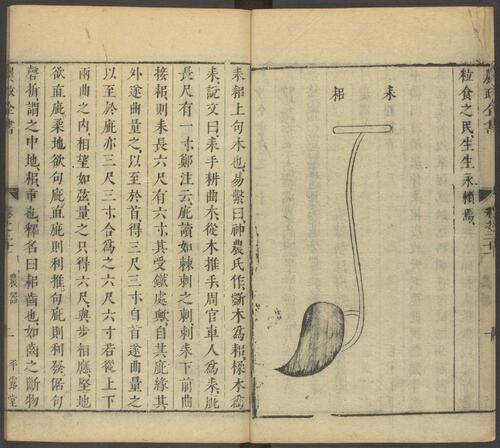 粒食之民生生永賴焉
耒
耜
耒耜上句木也易繫曰神農氏作斲木為耜揉木為
耒說文曰耒手耕曲木從木推手周官車人為耒庛
長尺有一寸鄭注云庛讀如棘刺之刺刺耒下前曲
接耜則耒長六尺有六寸其受鐵處歟自其庛緣其
外遂曲量之以至於首得三尺三寸自首遂曲量之
以至於庛亦三尺三寸合為之六尺六寸若從上下
兩曲之內相望如弦量之只得六尺與步相應堅地
欲直庛柔地欲句庛直庛則利推句庛則利發倨句
磬折謂之中地耜臿也釋名曰耜齒也如齒之斷物
農政全書 卷之二十一 農器 一 平露堂